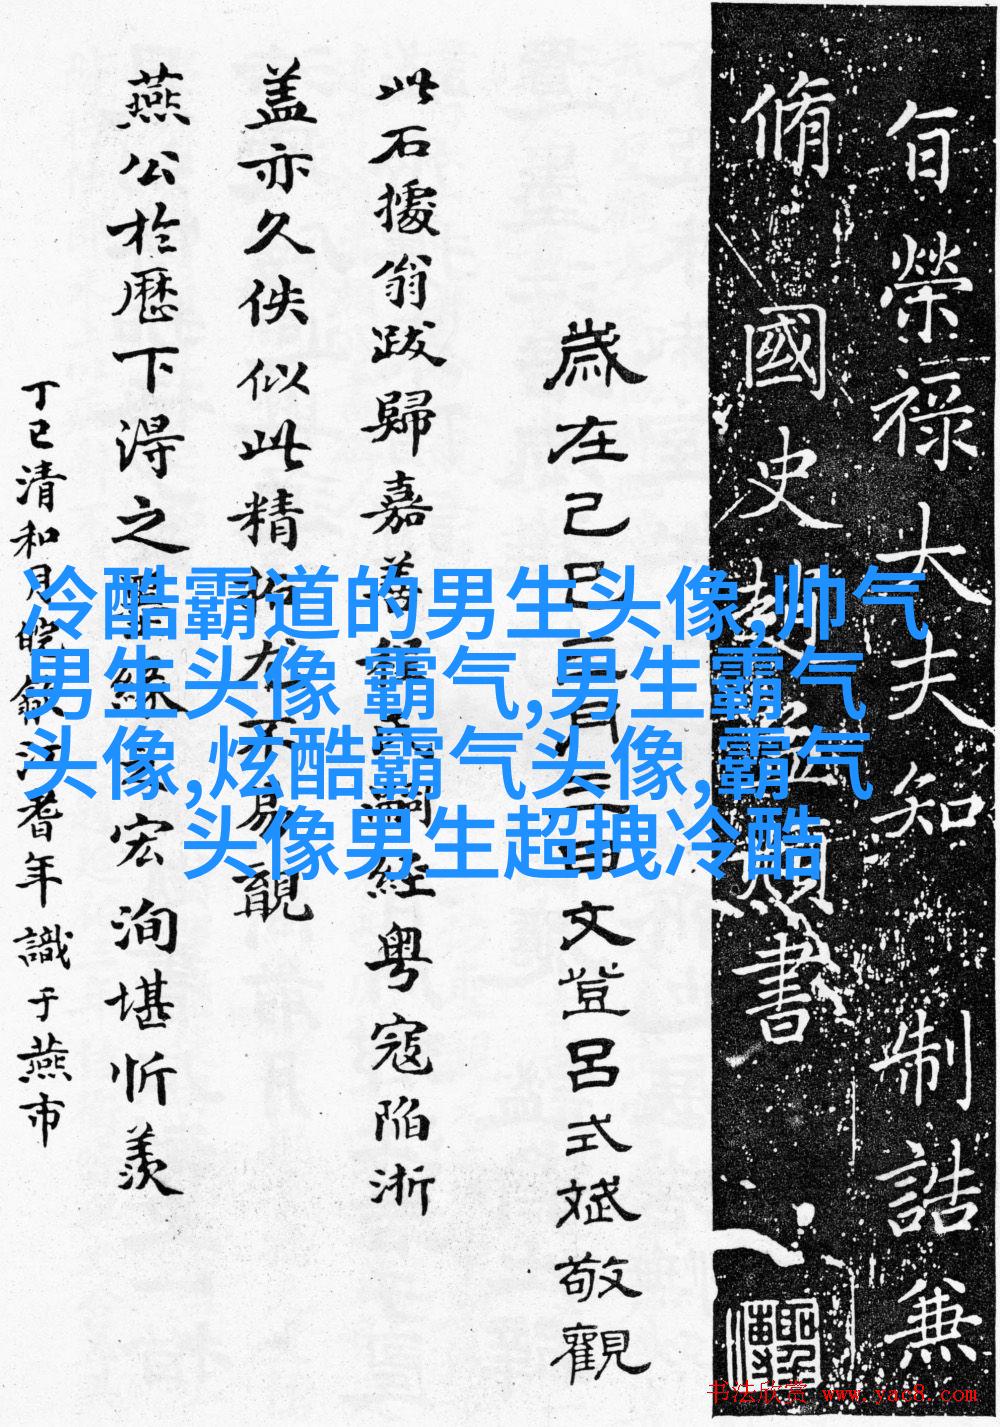 旨榮祿大夫知制誥兼
脩國史趙孟頫書
歲在己巳三月三日文登呂式斌敬觀
此石據翁跋歸嘉善經粵寇陷浙
盖亦久佚似此精拓尤不易覯
燕公於歷下得之墨緣宏洵堪忻羨
丁巳清和月皖歙江耆年識于燕市
冷酷霸道的男生头像,帅气
男生头像 霸气,男生霸气
头像,炫酷霸气头像,霸气
头像男生超拽冷酷
书法欣赏 www.yac8.com